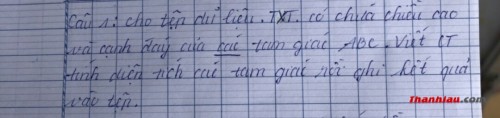 Câu 1: cho tệp dữ liệu .TXT. có chứa chiều cao
và cạnh đáy của các tam giác ABC. Viết CT
tính diện tích các tam giác rồi ghi kết quả
vào tệp.
Thanhlau.com